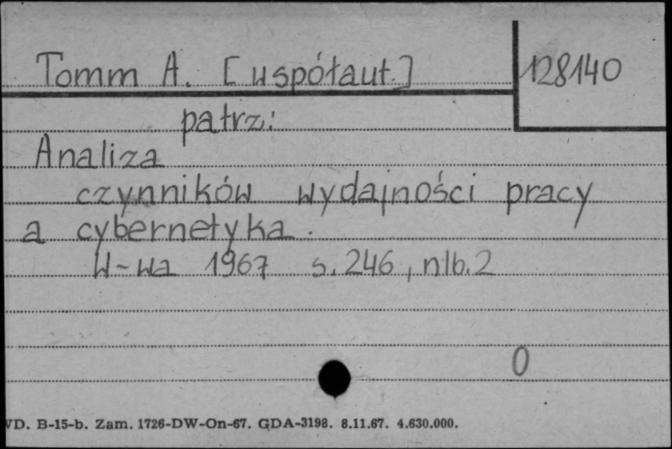 Tomm A. [współaut.] 128140
patrz:
Analiza
czynników wydajności pracy
a cybernetyka.
W-wa 1967 s. 246, nlb. 2
0
VD. B-15-b. Zam. 1726-DW-On-67. GDA-3198. 8.11.67. 4.630.000.